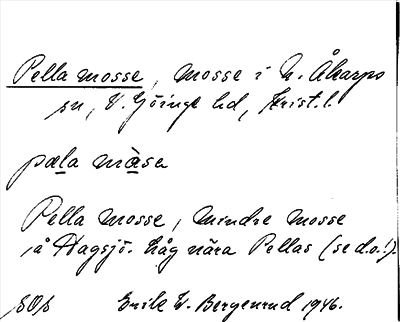 Pella mosse, mosse i N. Åkarps
sn, V. Göinge hd, Krist. l.
pæla måsa
Pella mosse, mindre mosse
å Hagsjö. Låg nära Pellas (se d.o.!).
Erik W. Bergenrud 1946.